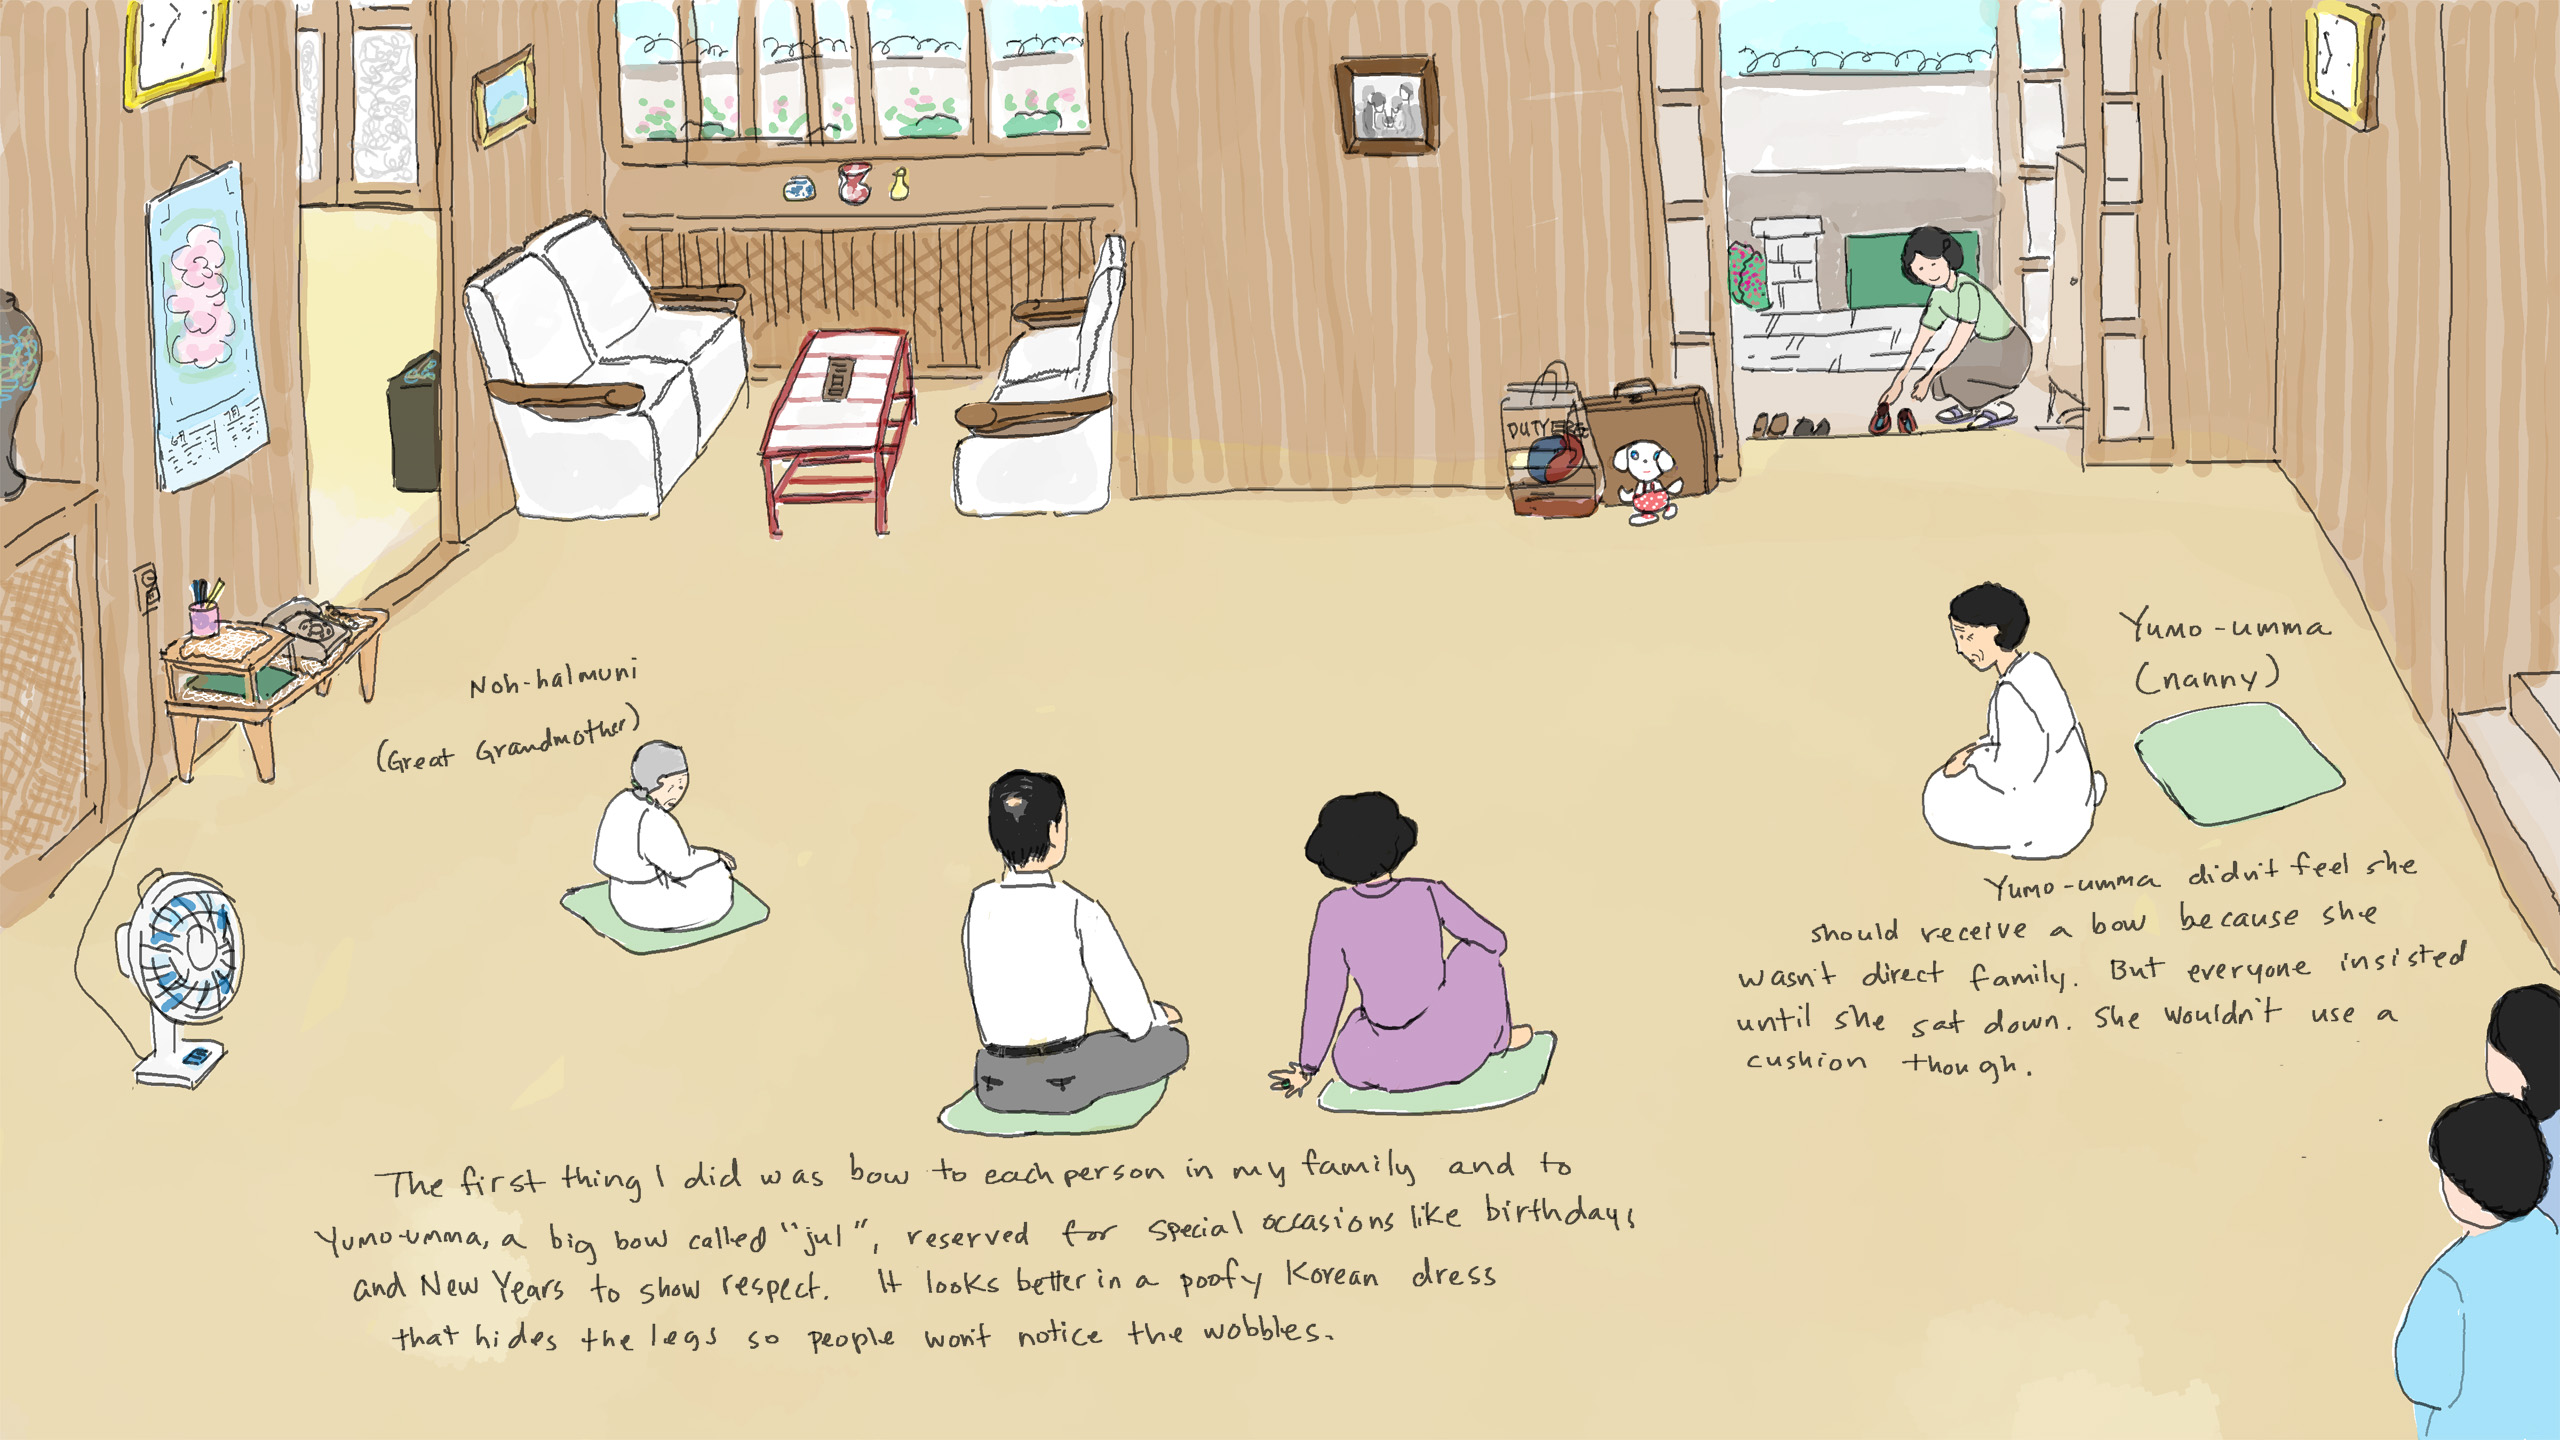 DUTY FREE
6月
7月
Noh-halmuni
(Great Grandmother)
Yumo-umma
(nanny)
Yumo-umma didn't feel she
should receive a bow because she
wasn't direct family. But everyone insisted
until she sat down. She wouldn't use a
cushion though.
The first thing I did was bow to each person in my family and to
Yumo-umma, a big bow called "jul", reserved for special occasions like birthdays
and New Years to show respect. It looks better in a poofy Korean dress
that hides the legs so people won't notice the wobbles.